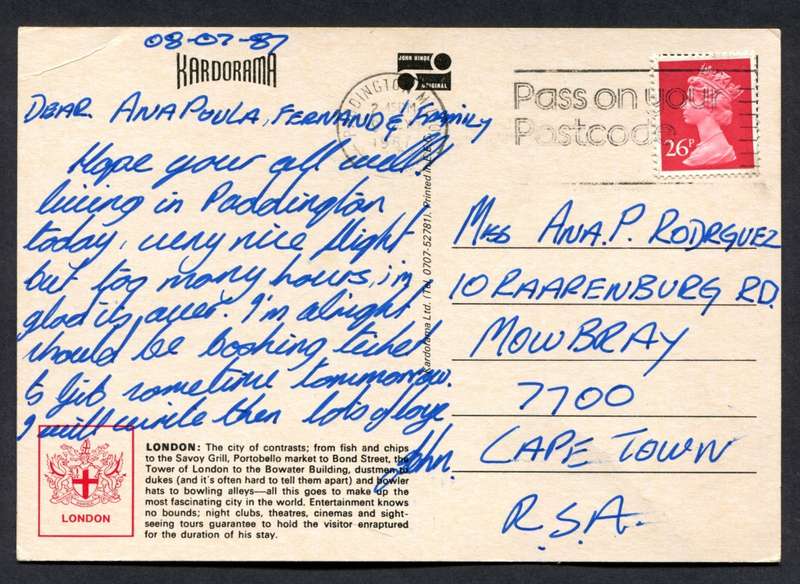 08-07-87
KARDORAMA
JOHN HINDE
ORIGINAL
PADDINGTON
2.45PM
Pass on your
Postcode
26P
DEAR ANAPOULA, FERNAND & Family
Hope your all well!
living in Paddington
today, very nice flight
but too many hours, i'm
glad its over. I'm alright
should be booking ticket
to Gib sometime tommorrow.
I will write then lots of love
John.
Kardorama Ltd. (Tel. 0707-52781). Printed in E.E.C.
Miss ANA.P. RODRGUEZ
10 RAARENBURG RD.
MOWBRAY
7700
CAPE TOWN
R.S.A.
LONDON
LONDON: The city of contrasts; from fish and chips
to the Savoy Grill, Portobello market to Bond Street, the
Tower of London to the Bowater Building, dustmen to
dukes (and it's often hard to tell them apart) and bowler
hats to bowling alleys—all this goes to make up the
most fascinating city in the world. Entertainment knows
no bounds; night clubs, theatres, cinemas and sight-
seeing tours guarantee to hold the visitor enraptured
for the duration of his stay.